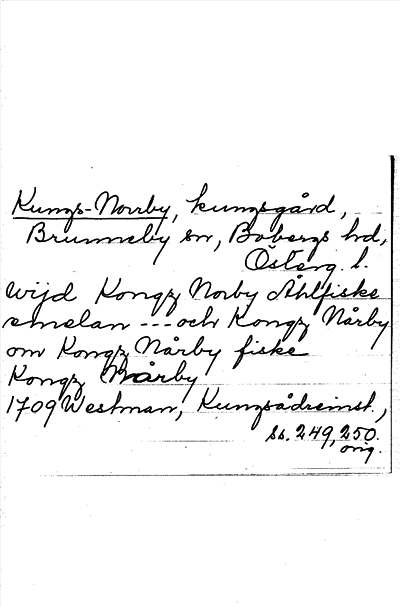 Kungs-Norrby, kungsgård,
Brunneby sn, Bobergs hd,
Österg. l.
wijd Kongz Norby Åhlfiske
emelan --- och Kongz Nårby
om Kongz Nårby fiske
Kongz Nårby
1709 Westman, Kungsådreinst.,
ss. 249, 250.
orig.